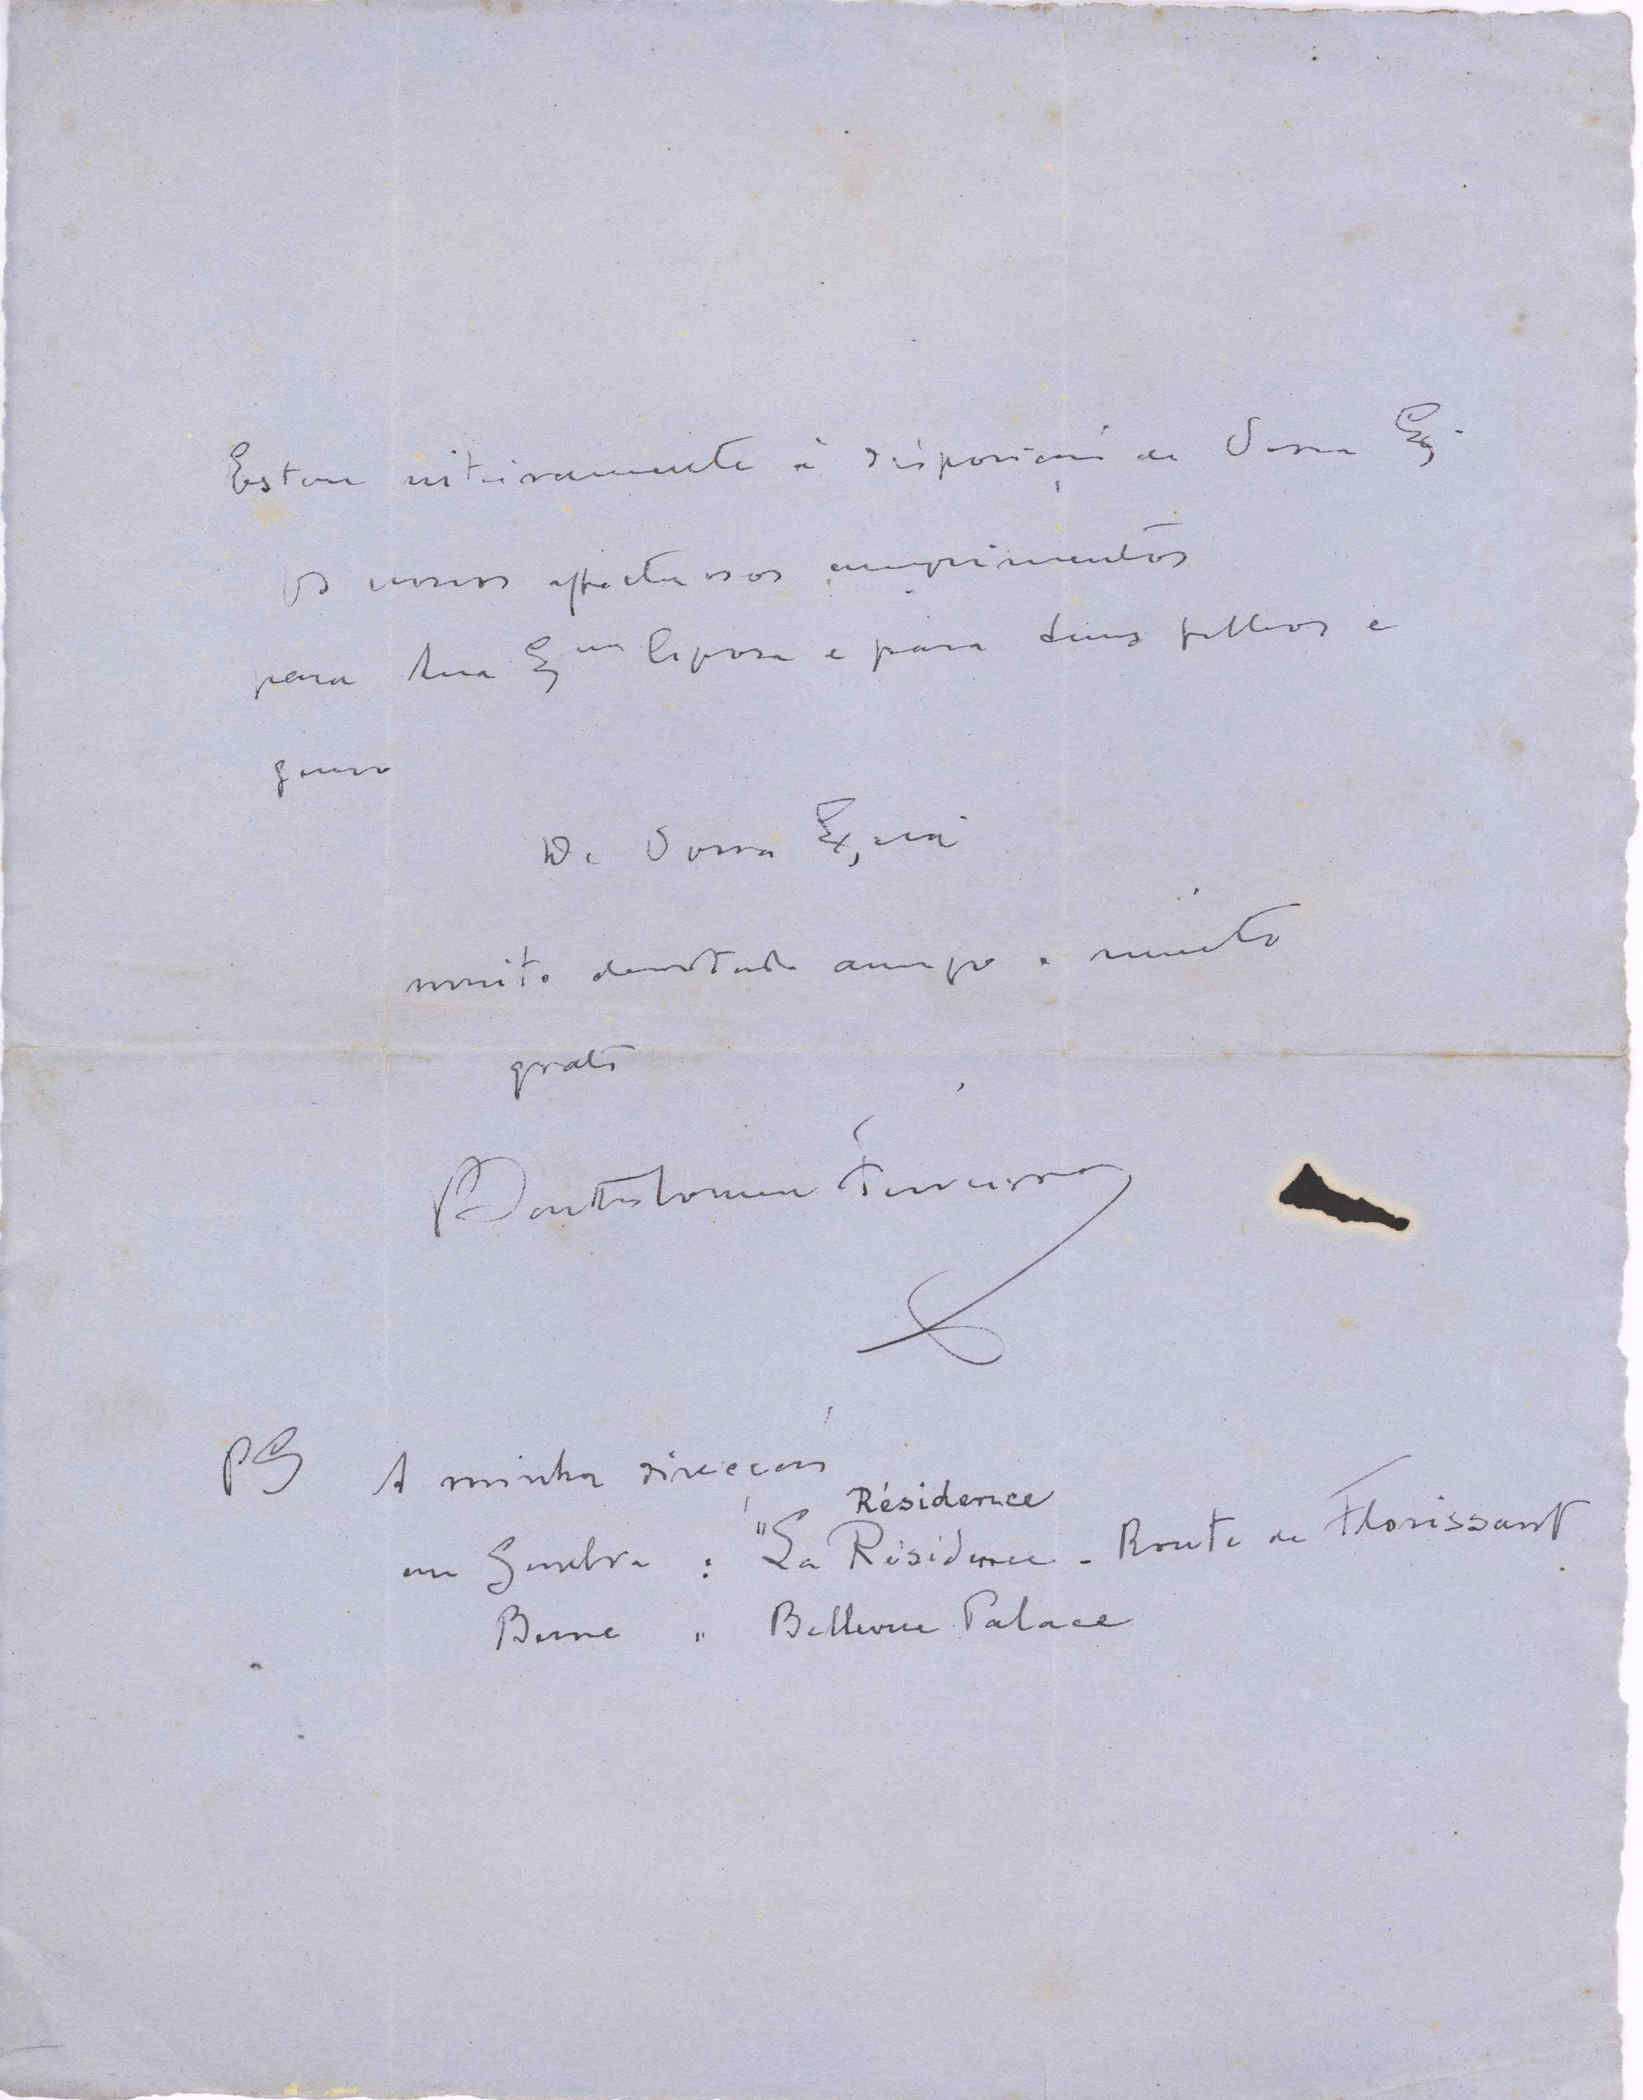 Estou inteiramente à disposição de Vossa Ex.
Os nossos afectuosos cumprimentos
para sua Ex.ma Esposa e para seus filhos e
genro
De Vossa Ex,cia
muito devotado amigo e muito
grato
Bartholomeu Ferreira
PS A minha direcção
Résidence
em Genebra : "La Résidence - Route de Florissant
Berne " Bellevue Palace